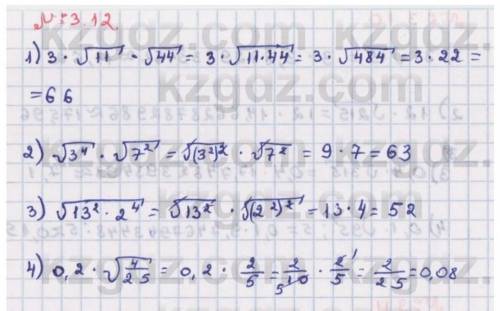 № 3.12.
1) 3 · √11 · √44 = 3 · √11·44 = 3 · √484 = 3 · 22 =
= 66
2) √3⁴ · √7² = √(3²)² · √7² = 9 · 7 = 63
3) √13² · 2⁴ = √13² · √(2²)² = 13 · 4 = 52
4) 0,2 · √4/25 = 0,2 · 2/5 = 2/10 · 2/5 = 2/25 = 0,08
kzgdz.com kzgdz.com